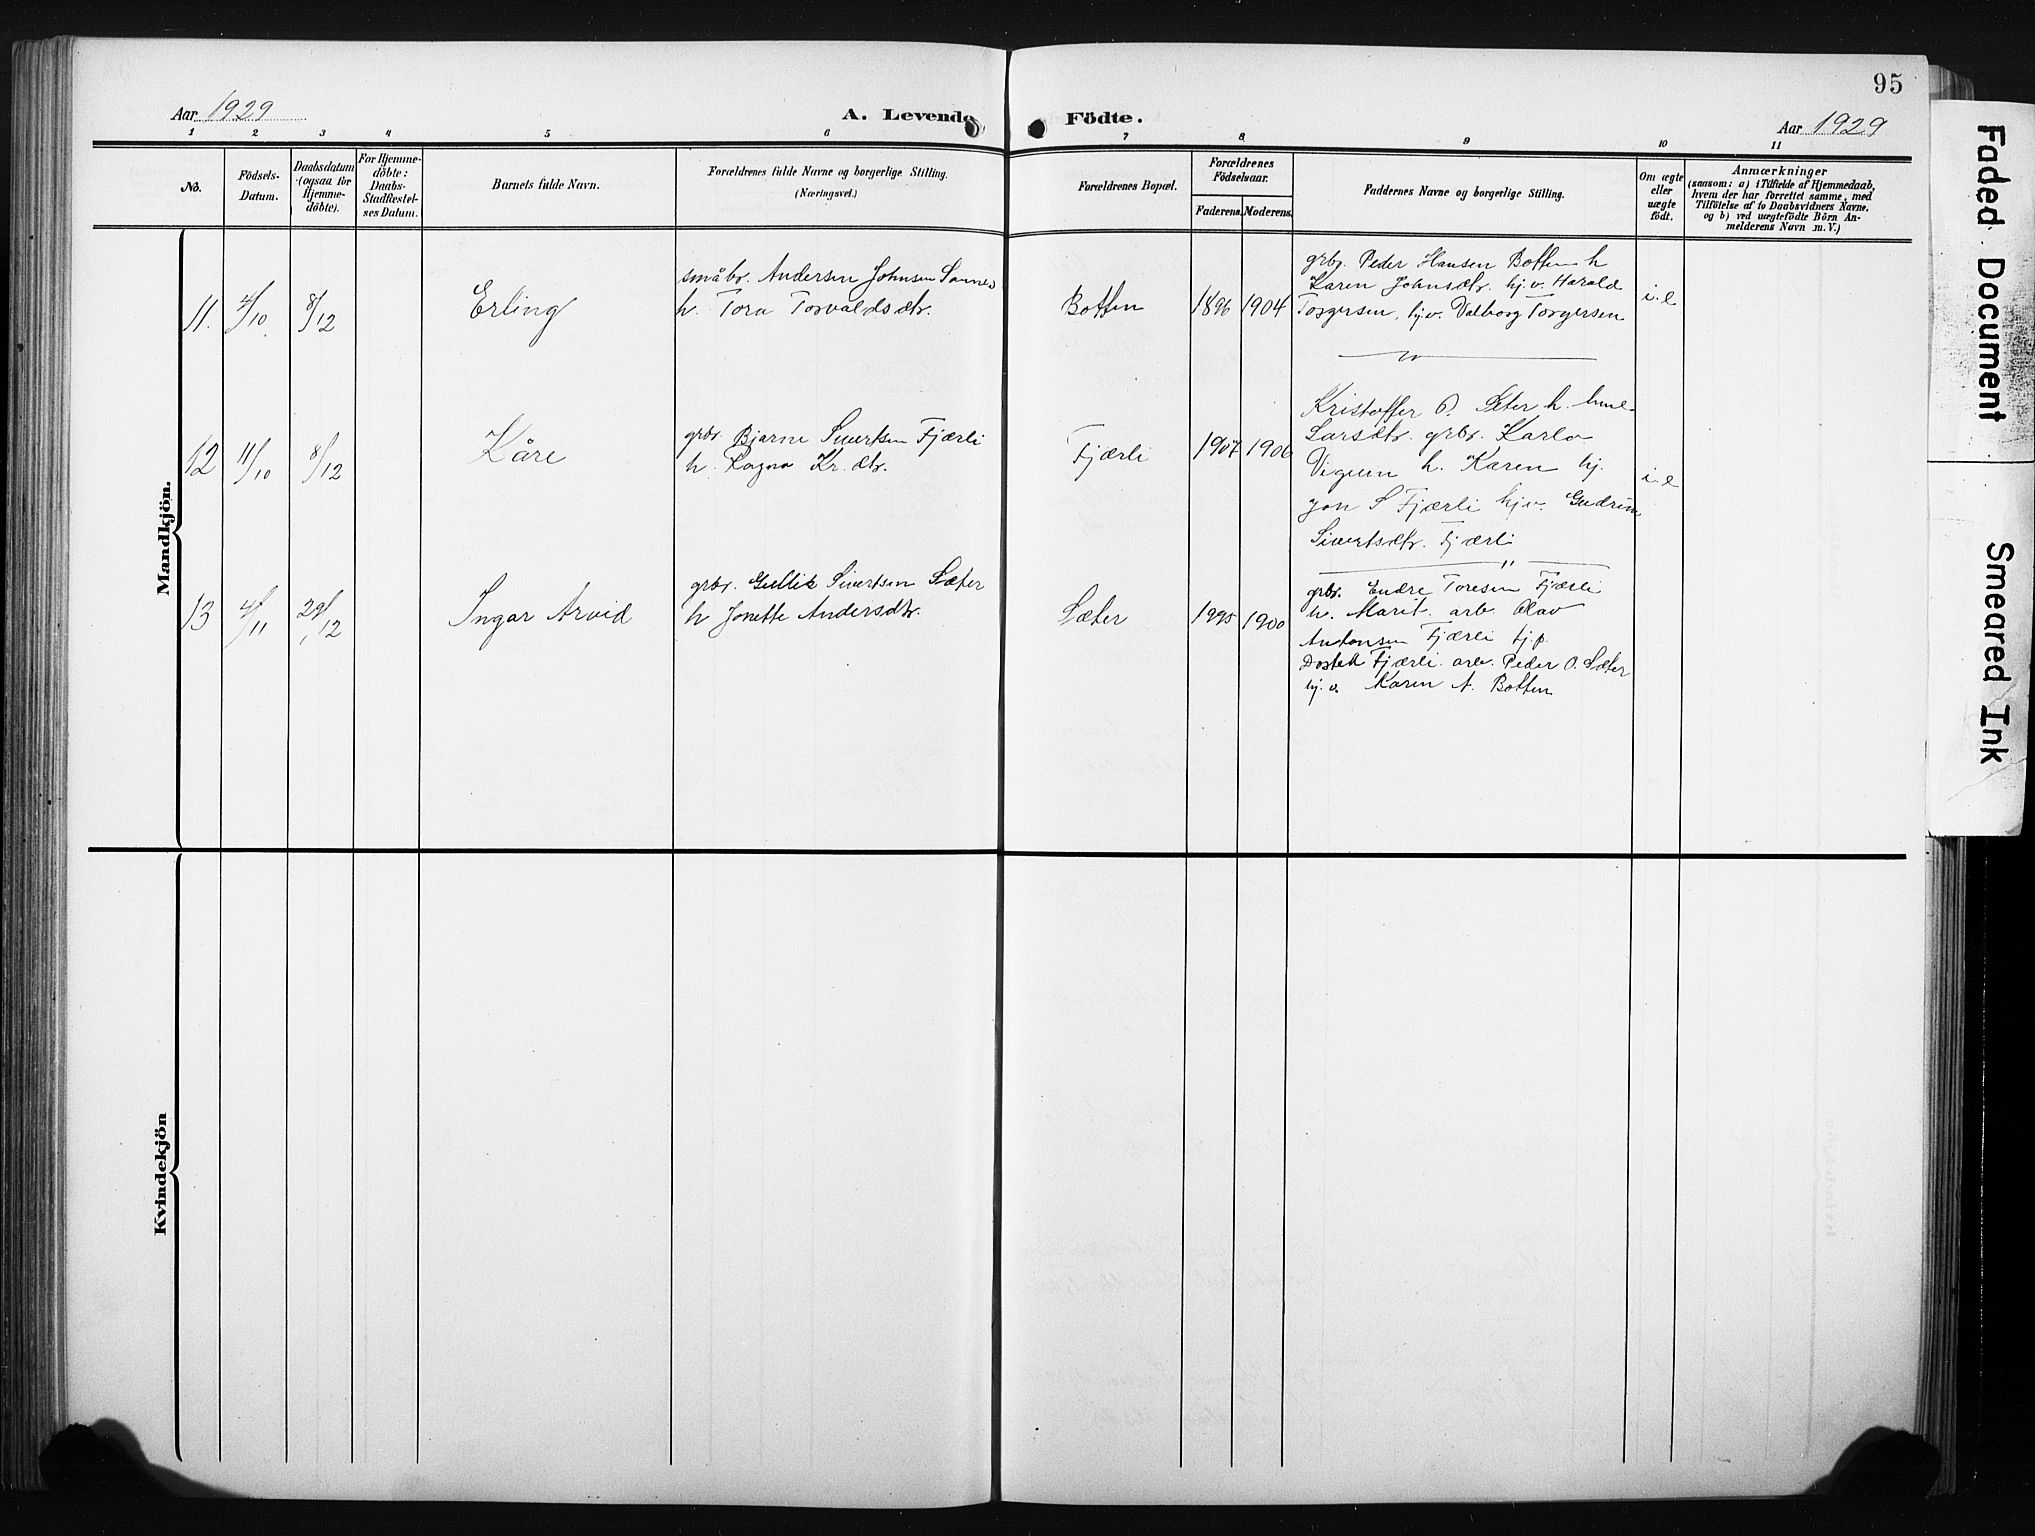 95
Aar 1929
A. Levende
Födte.
Aar 1929
1 2 3 4 5 6 7 8 9 10 11
No.
Födsels-
Datum.
Daabsdatum
(ogsaa for
Hjemme-
döbte).
For Hjemme-
döbte:
Daabs-
Stadfestel-
ses Datum.
Barnets fulde Navn.
Forældrenes fulde Navne og borgerlige Stilling.
(Næringsvei.)
Forældrenes Bopæl.
Forældrenes
Födselsaar.
Faderens.
Moderens.
Faddernes Navne og borgerlige Stilling.
Om ægte
eller
uægte
födt.
Anmærkninger
(saasom: a) i Tilfælde af Hjemmedaab,
hvem der har forrettet samme, med
Tilföielse af to Daabsvidners Navne,
og b) ved uægtefödte Börn An-
melderens Navn m. V.)
Mandkjön.
11. 4/10 8/12 Erling
småbr. Andersen Johnsen
h. Tora Torvaldsdtr.
Botten 1896 1904
grbr. Peder Hansen Botten h
Karen Johnsdtr. hj.v. Harald
Torgersen, hj.v. Valborg Torgersen
i. e
12 11/10 8/12 Kåre
grbr. Bjarne Sivertsen Fjærli
h. Ragna Kr. dtr.
Fjærli 1907 1906
Kristoffer O. Seter h.
Larsdtr. grbr. Karlo
Vigum h. Karen hj.
Jon S Fjærli hjv. Gudrun
Sivertsdtr. Fjærli
i. e
13 4/11 29/12 Ingar Arvid
grbr. Gullik Sivertsen Sæter
h Jonette Andersdtr.
Sæter 1895 1900
grbr. Endre Toresen Fjærli
h. Marit. arb. Olav
Antonsen Fjærli tj.p.
Fjærli. arb. Peder O. Sæter
hj. v. Karen A. Botten
Kvindekjön
Faded Document
Smeared Ink